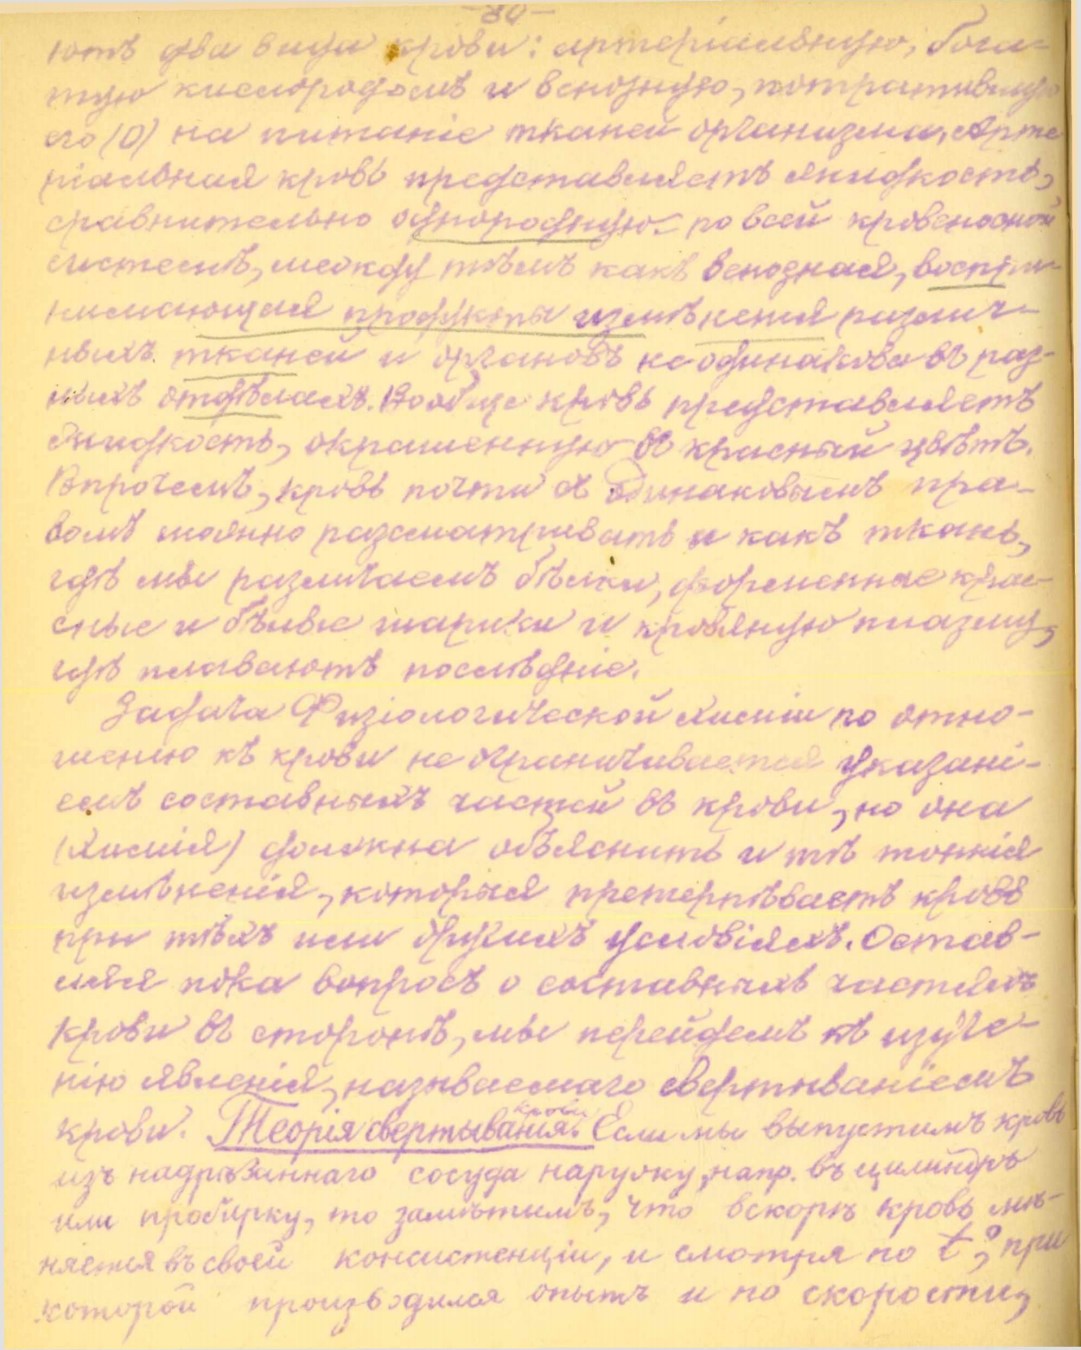 -80-
ютъ два вида крови: артеріальную, бога-
тую кислородомъ и венозную, потратившую
его (О) на питаніе тканей организма. Арте
ріальная кровь представляетъ жидкость,
сравнительно однородную по всей кровеносной
системѣ, между тѣмъ какъ венозная, воспри-
нимающая продукты измѣненія различ-
ныхъ тканей и органовъ не одинакова въ раз-
ныхъ отдѣлахъ. Вообще кровь представляетъ
жидкость, окрашенную въ красный цвѣтъ.
Впрочемъ, кровь почти съ одинаковымъ пра-
вомъ можно разсматривать и какъ ткань,
гдѣ мы различаемъ бѣлки, форменные крас-
сные и бѣлые шарики и кровяную плазму,
гдѣ плаваютъ послѣдніе.
Задача Физіологической химіи по отно-
шенію къ крови не ограничивается указані-
емъ составныхъ частей въ крови, но она
(химія) должна объяснить и тѣ тонкія
измѣненія, которыя претерпѣваетъ кровь
при тѣхъ или другихъ условіяхъ. Остав-
ляя пока вопросъ о составныхъ частяхъ
крови въ сторонѣ, мы перейдемъ къ изуче-
нію явленія, называемаго свертываніемъ
крови. Теорія свертыванія крови. Если мы выпустимъ кровь
изъ надрѣзаннаго сосуда наружу, напр. въ цилиндръ
или пробирку, то замѣтимъ, что вскорѣ кровь мѣ-
няется въ своей консистенціи, и смотря по t°, при
которой производился опытъ и по скорости,